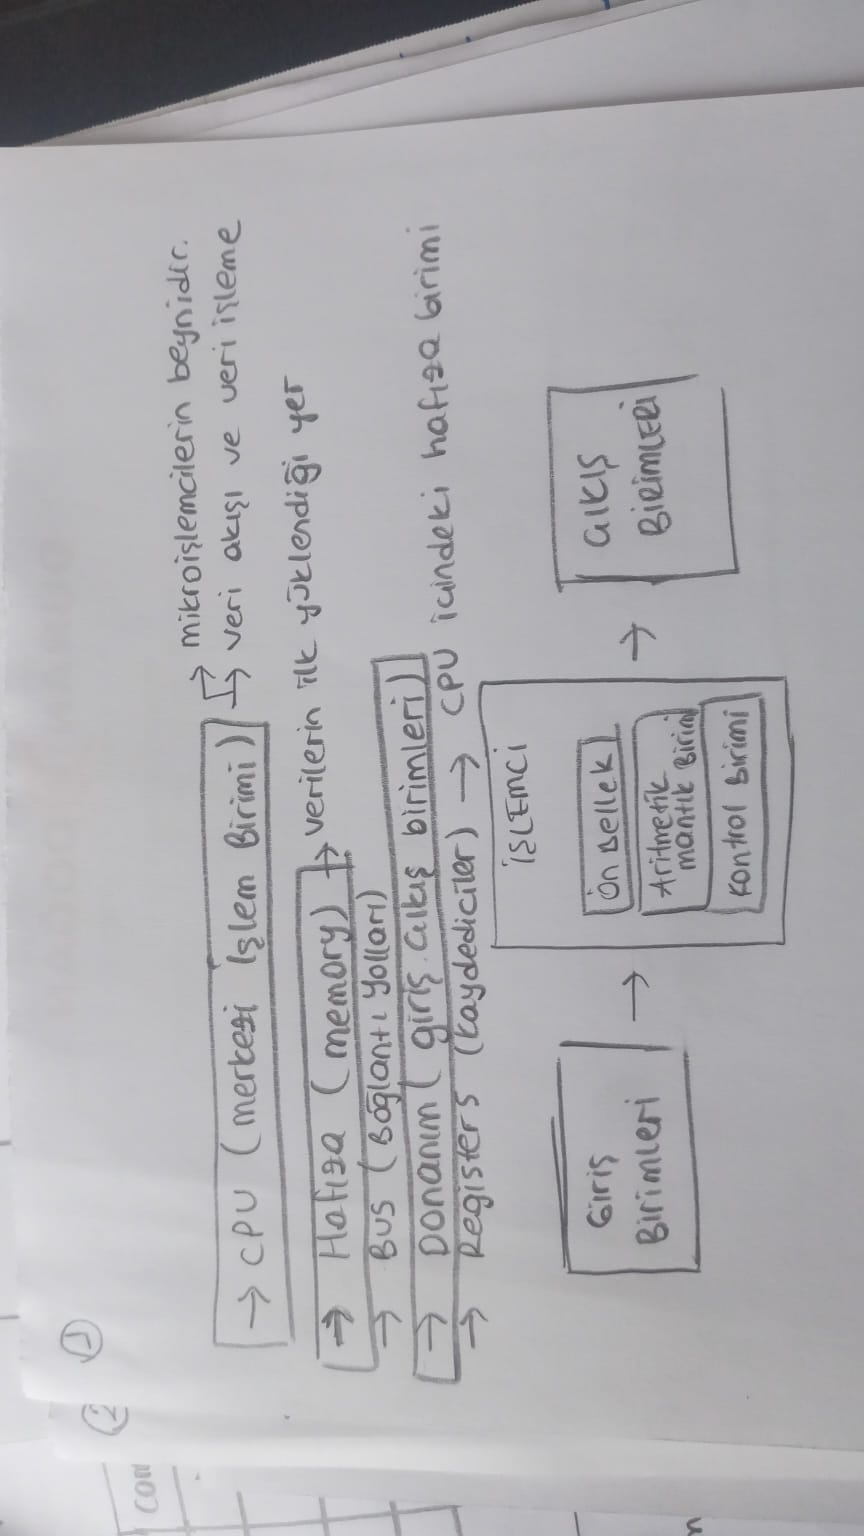 ①
→ CPU (merkezi İşlem Birimi) → mikroişlemcilerin beynidir.
→ veri akışı ve veri işleme
→ Hafıza (memory) → verilerin ilk yüklendiği yer
→ Bus (Bağlantı Yolları)
→ Donanım (giriş. çıkış birimleri)
→ Registers (kaydediciler) → CPU içindeki hafıza birimi
Giriş
Birimleri
→
İŞLEMCİ
Ön Bellek
Aritmetik
mantık Birim
Kontrol Birimi
→
ÇIKIŞ
BİRİMLERİ
②